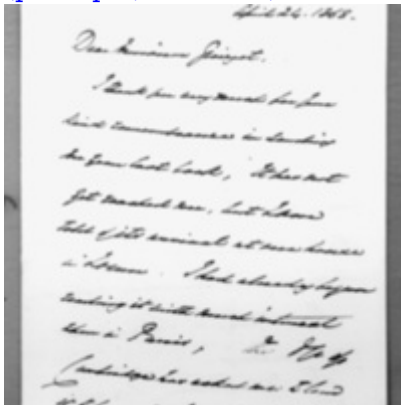 April 24. 1868.
Dear Monsieur Guizot.
I thank you very much for your
kind remembrance in sending
me your last book, It has not
yet reached me, but I have
told of its arrival at my house
in I had already begun
reading it with much interest
when in Paris,
has asked me I